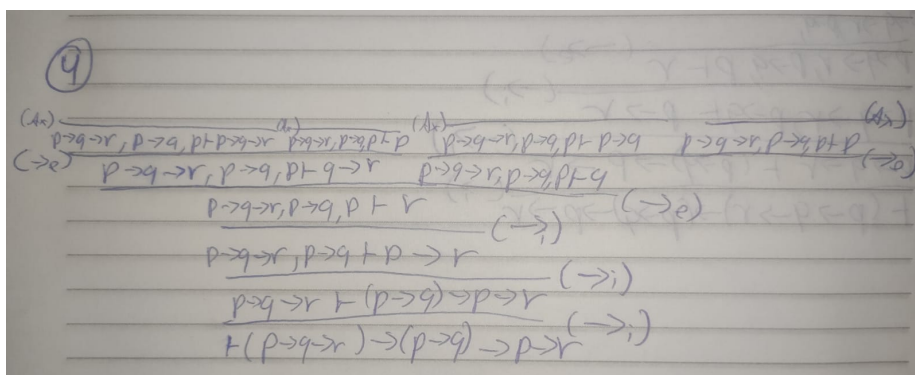 4
(Ax) (ax) (Ax) (Ax)
p→q→r, p→q, p ⊢ p→q→r p→q→r, p→q, p ⊢ p p→q→r, p→q, p ⊢ p→q p→q→r, p→q, p ⊢ p
(→e) (→e)
p→q→r, p→q, p ⊢ q→r p→q→r, p→q, p ⊢ q
(→e)
p→q→r, p→q, p ⊢ r
(→i)
p→q→r, p→q ⊢ p→r
(→i)
p→q→r ⊢ (p→q)→p→r
(→i)
⊢(p→q→r)→(p→q)→p→r